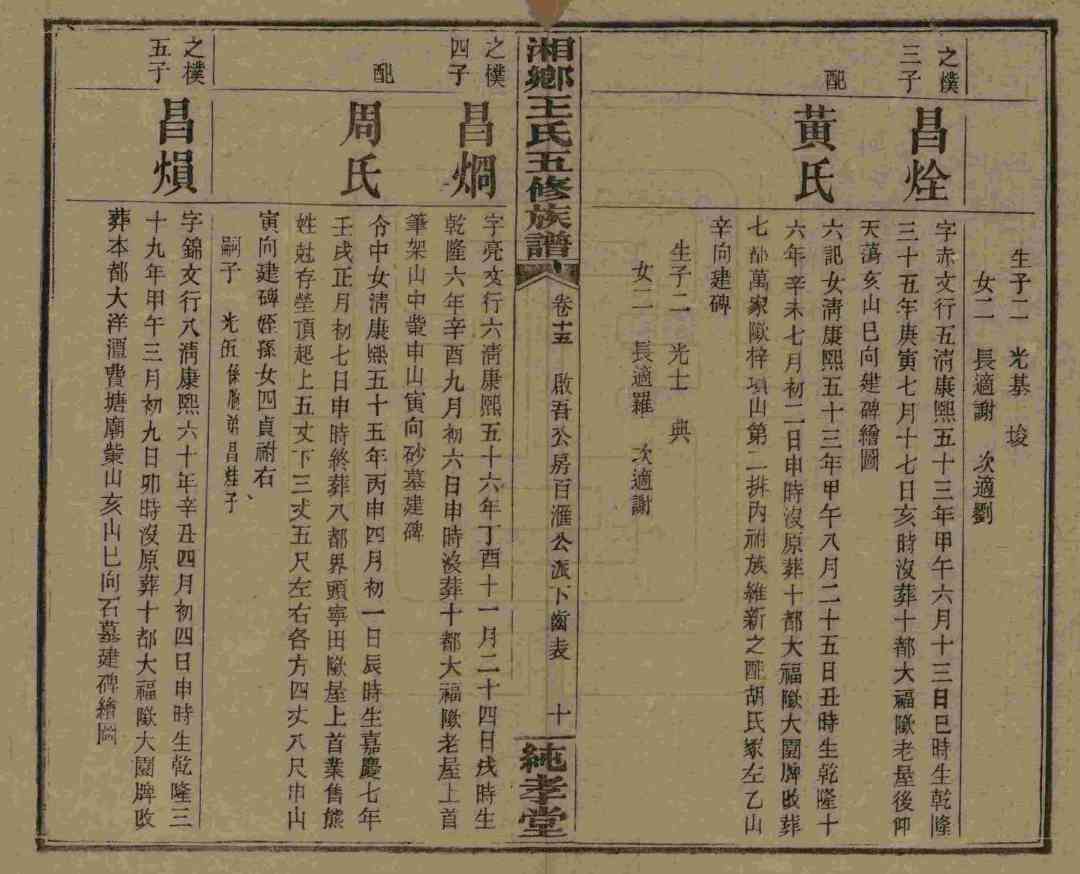 生子二 光基 埈
女二 長適謝 次適劉
之樸
三子
昌烇
字赤文行五清康熙五十三年甲午六月十三日巳時生乾隆
三十五年庚寅七月十七日亥時沒葬十都大福歐老屋後仰
天蕩亥山巳向建碑繪圖
配
黃氏
六記女清康熙五十三年甲午八月二十五日丑時生乾隆十
六年辛未七月初二日申時沒原葬十都大福歐大園牌改葬
七都萬家歐梓項山第二排內祔族維新之配胡氏冢左乙山
辛向建碑
生子二 光士 典
女二 長適羅 次適謝
湘鄉王氏五修族譜
卷十五 啟吾公房百滙公派下齒表 十
純孝堂
之樸
四子
昌烱
字亮文行六清康熙五十六年丁酉十一月二十四日戌時生
乾隆六年辛酉九月初六日申時沒葬十都大福歐老屋上首
筆架山中嶪申山寅向砂墓建碑
配
周氏
令中女清康熙五十五年丙申四月初一日辰時生嘉慶七年
壬戌正月初七日申時終葬八都界頭寧田歐屋上首業售熊
姓尅存塋頂起上五丈下三丈五尺左右各方四丈八尺申山
寅向建碑姪孫女四貞祔右
嗣子 光伍係胞弟昌烓子
之樸
五子
昌熉
字錦文行八清康熙六十年辛丑四月初四日申時生乾隆三
十九年甲午三月初九日卯時沒原葬十都大福歐大園牌改
葬本都大洋潭費塘廟嶪山亥山巳向石墓建碑繪圖